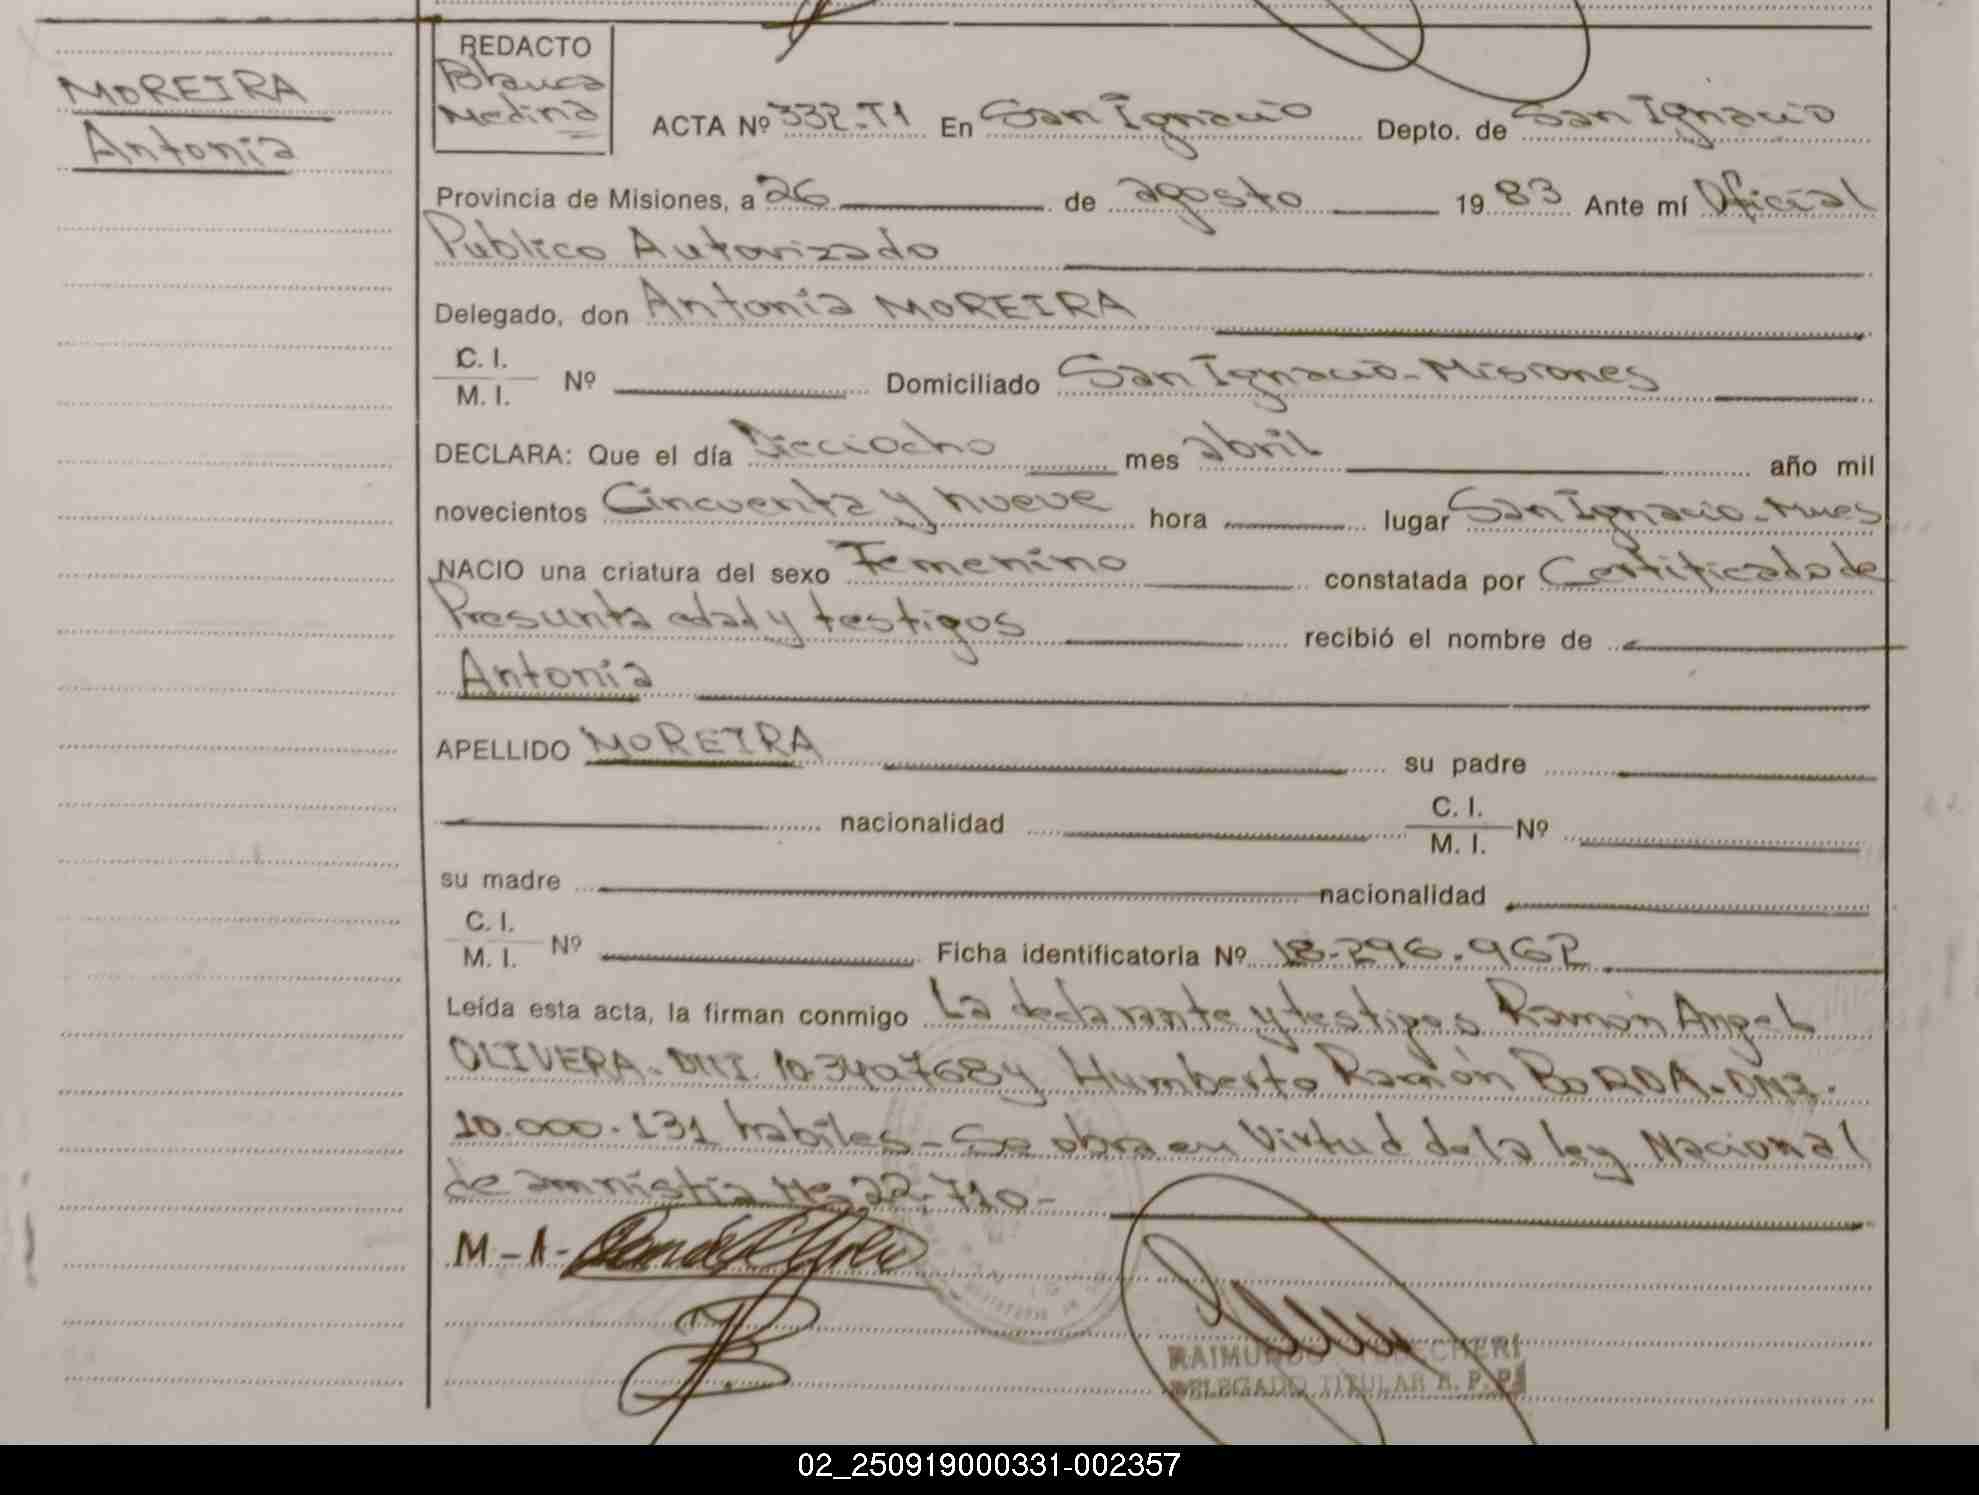 MOREIRA
Antonia
REDACTO
Blanca
Medina
ACTA Nº 332-T1 En San Ignacio Depto. de San Ignacio
Provincia de Misiones, a 26 de agosto 1983 Ante mí Oficial
Publico Autorizado
Delegado, don Antonia MOREIRA
C. I.
M. I. Nº Domiciliado San Ignacio-Misiones
DECLARA: Que el día Dieciocho mes abril año mil
novecientos Cincuenta y nueve hora lugar San Ignacio-Mnes
NACIO una criatura del sexo Femenino constatada por Certificado de
Presunta edad y testigos recibió el nombre de
Antonia
APELLIDO MOREIRA su padre
nacionalidad C. I.
M. I. Nº
su madre nacionalidad
C. I.
M. I. Nº Ficha identificatoria Nº 18-296.962
Leída esta acta, la firman conmigo La declarante y testigos Ramón Angel
OLIVERA-DNI. 10.340.768 y Humberto Ramón BORDA-DNI.
10.000.131 habiles-Se obra en Virtud de la ley Nacional
de amnistia Nº 22.710-
M-A-
RAIMUNDO
DELEGADO TITULAR R. P. P.
02_250919000331-002357